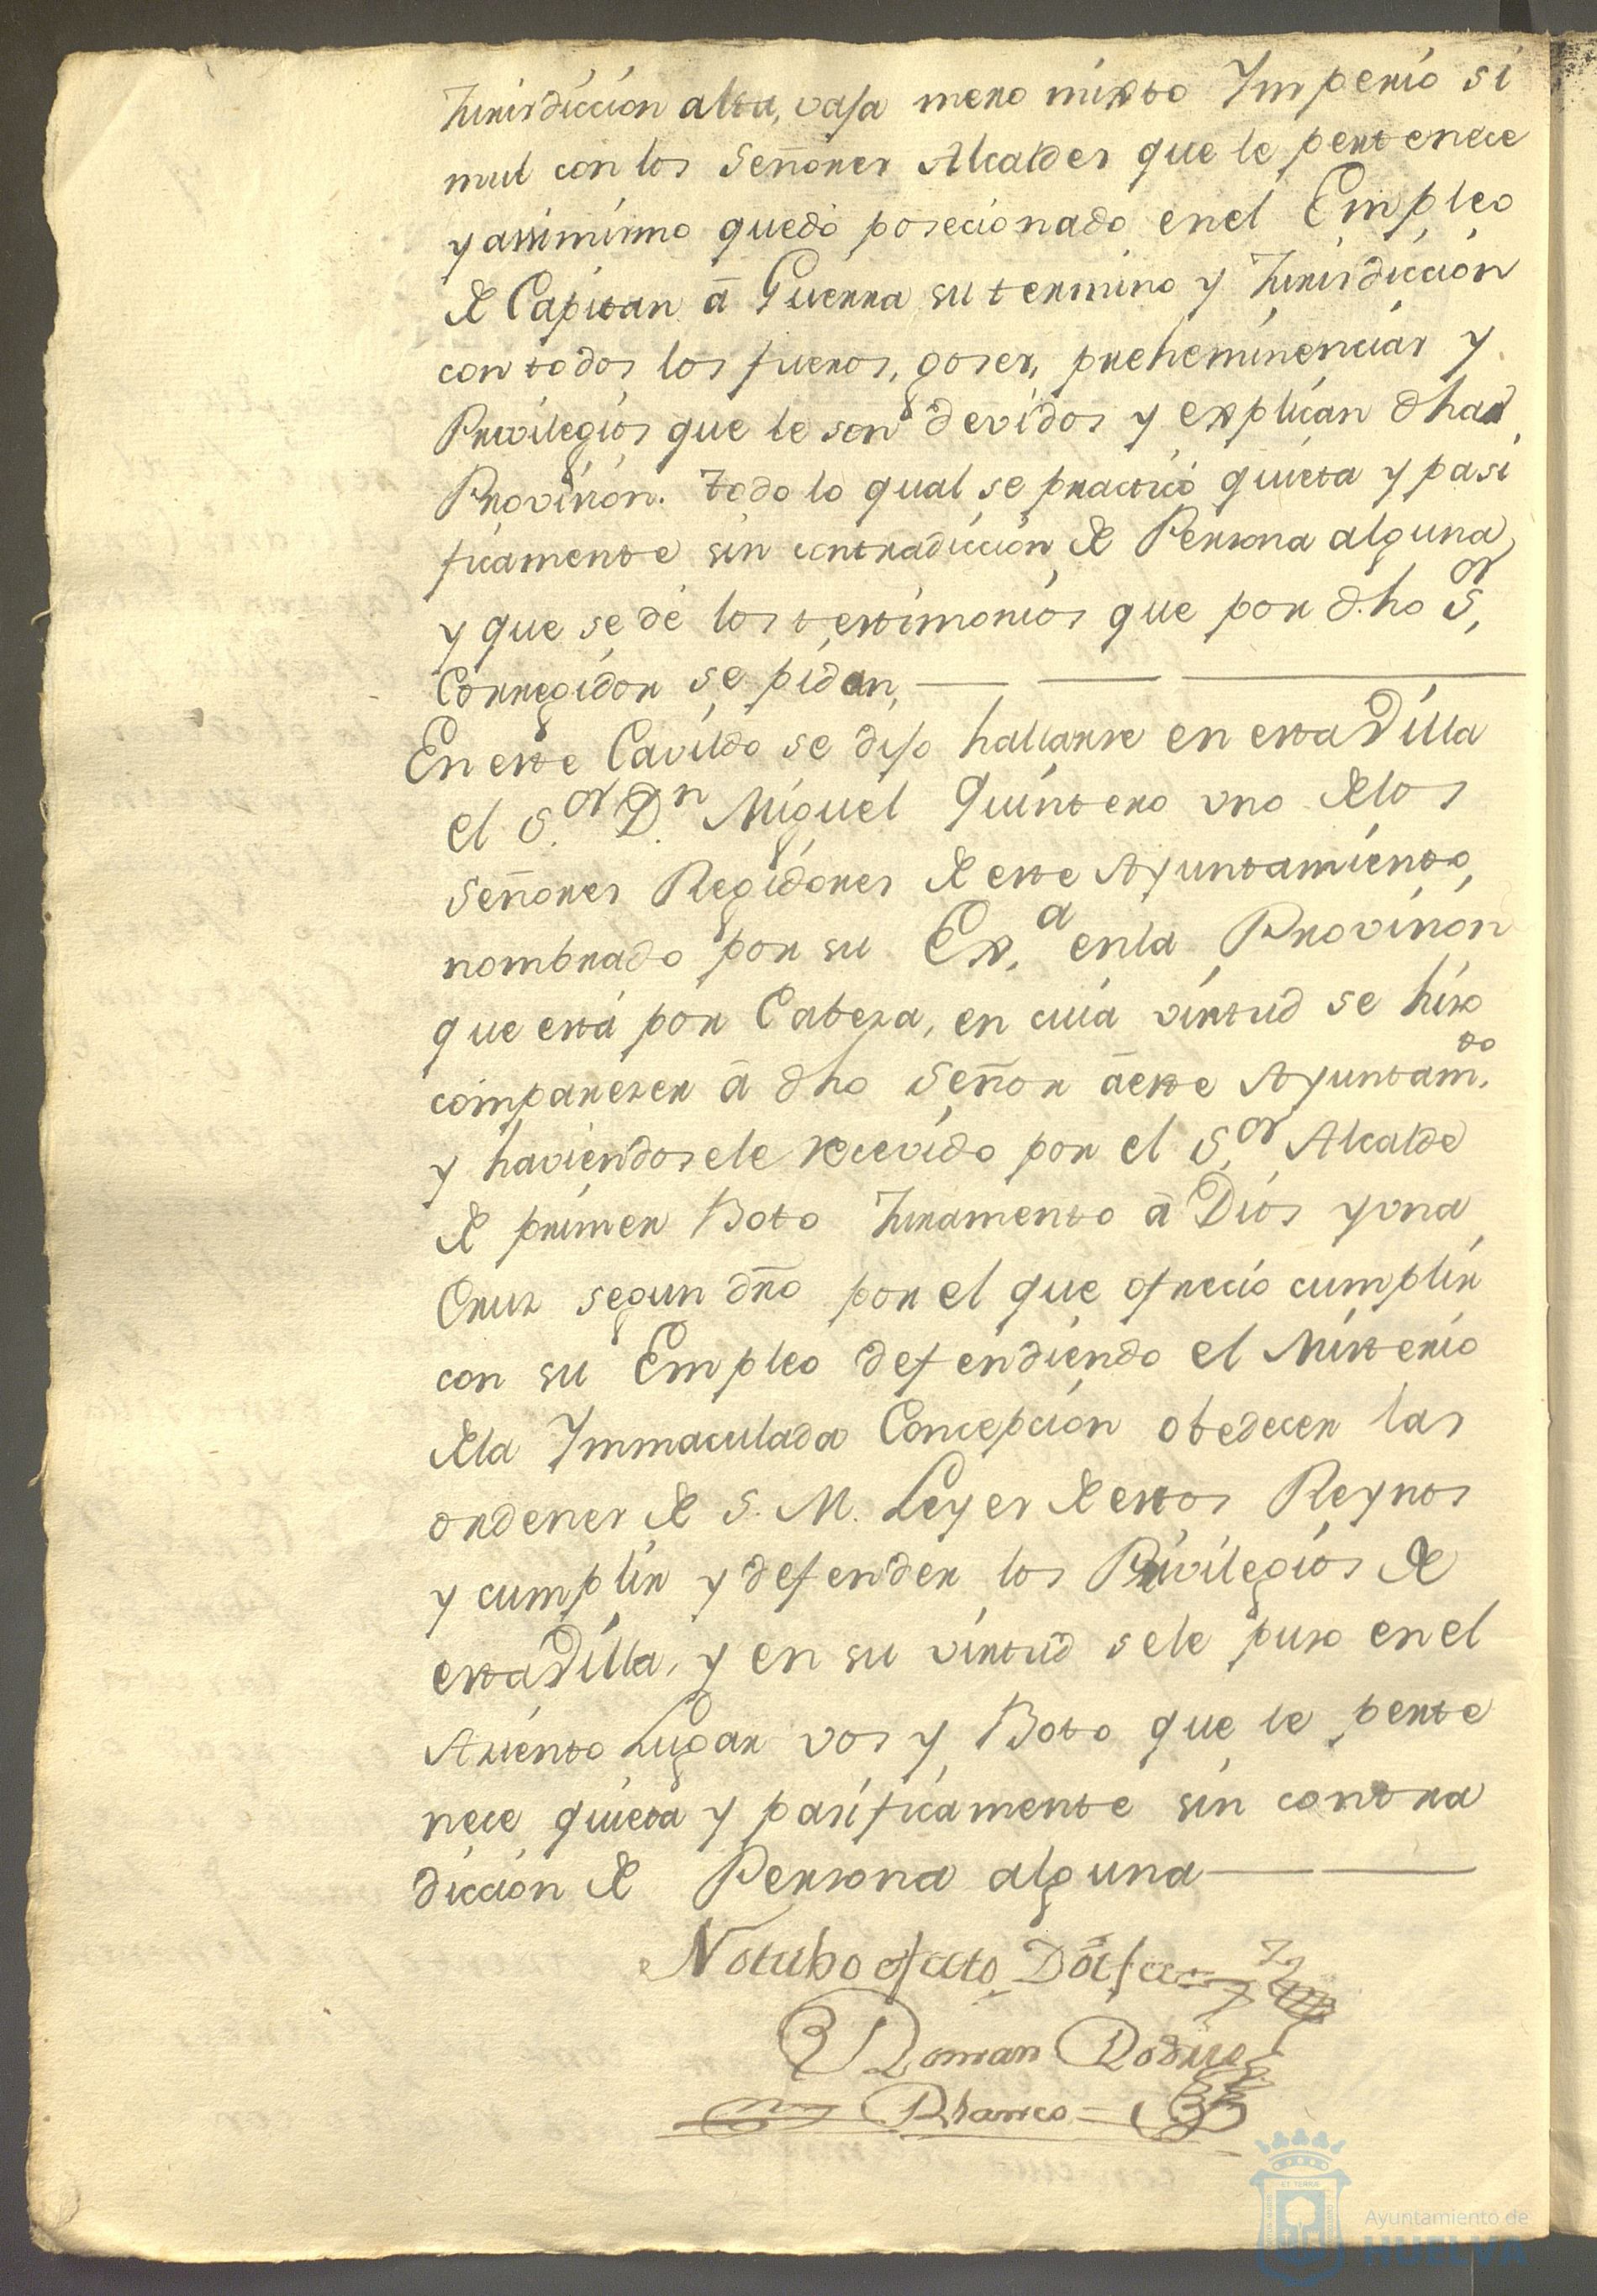 Jurisdiccion alta, vasa mero mixto Imperio si
mul con los Señores Alcaldes que le pertenece
y assimismo quedò posecionado enel Empleo
de Capitan â Guerra su termino y Jurisdiccion
con todos los fueros, goses, preheminencias y
Privilegios que le son devidos y explican dha
Provision. todo lo qual se practicò quieta y pasi
ficamente sin contradiccion de Persona alguna,
y que se dè los testimonios que por d.ho S.or
Corregidor se pidan,
En este Cavildo se dijo hallarse en esta Villa
el S.or D.n Miguel Quintero vno delos
Señores Regidores de este Ayuntamiento,
nombrado por su Ex.a enla Provision
que està por Cabeza, en cuia virtud se hiso
comparezer â dho Señor âeste Ayuntam.to
y haviendosele recevido por el S.or Alcalde
de primer Boto Juramento â Dios y vna
Cruz segun dr̃o por el que ofrecio cumplir
con su Empleo defendiendo el Misterio
dela Immaculada Concepcion obedecer las
ordenes de S. M. Leyes de estos Reynos
y cumplir y defender los Privilegios de
esta Villa, y en su virtud sele puso en el
Asiento Lugar vos y Boto que le perte
nece quieta y pasificamente sin contra
diccion de Persona alguna
Notubo efecto
Roman Rodrig.z
Blanco
Ayuntamiento de
HUELVA